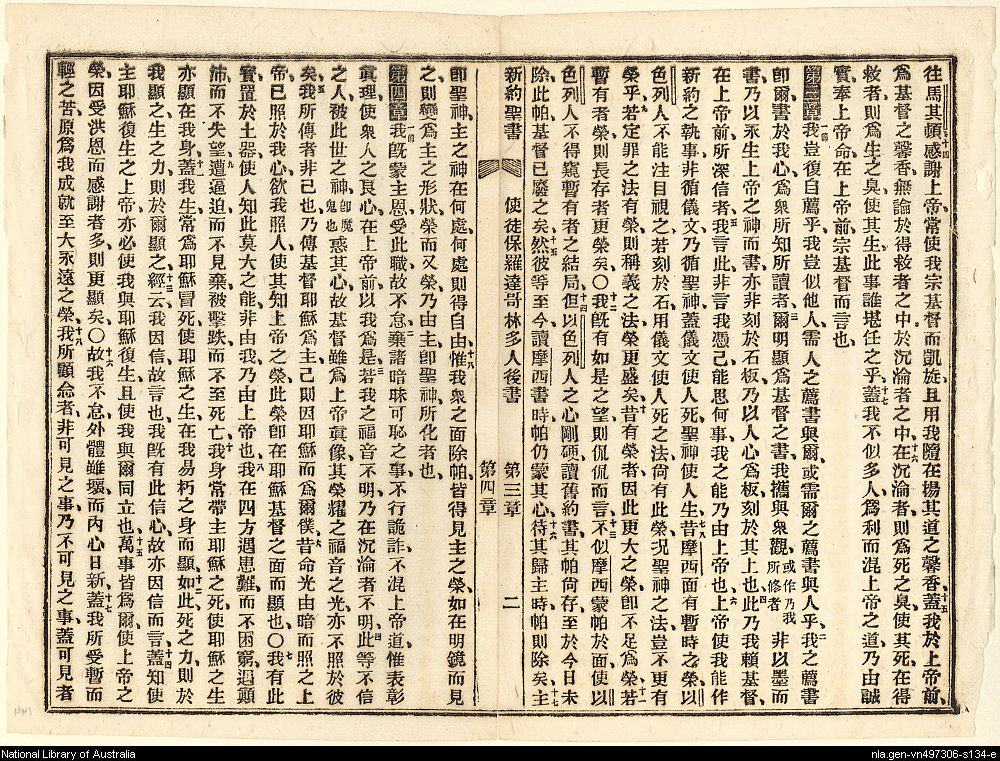 往焉其頓感謝上帝常使我宗基督而凱旋且用我隨在揚其道之馨香蓋我於上帝前
爲基督之馨香無論於得救者之中於沉淪者之中在沉淪者則爲死之臭使其死在得
救者則爲生之臭使其生此事誰堪任之乎蓋我不似多人爲利而混上帝之道乃由誠
實奉上帝命在上帝前宗基督而言也
第三章我豈復自薦乎我豈似他人需人之薦書與爾或需爾之薦書與人乎我之薦書
卽爾書於我心爲衆所知所讀者爾明顯爲基督之書我攜與衆觀或作乃我所修者非以墨而
書乃以永生上帝之神而書亦非刻於石板乃以人心爲板刻於其上也此乃我賴基督
在上帝前所深信者我言此非言我憑己能思何事我之能乃由上帝也上帝使我能作
新約之執事非循儀文乃循聖神蓋儀文使人死聖神使人生昔摩西面有暫時之榮以
色列人不能注目視之若刻於石用儀文使人死之法尚有此榮況聖神之法豈不更有
榮乎若定罪之法有榮則稱義之法榮更盛矣昔有榮者因此更大之榮卽不足爲榮若
暫有者榮則長存者更榮矣〇我旣有如是之望則侃侃而言不似摩西蒙帕於面使以
色列人不得窺暫有者之結局但以色列人之心剛硬讀舊約書其帕尚存至於今日未
除此帕基督已廢之矣然彼等至今讀摩西書時帕仍蒙其心待其歸主時帕則除矣主
新約聖書 使徒保羅達哥林多人後書 第三章 第四章 二
卽聖神主之神在何處何處則得自由惟我衆之面除帕皆得見主之榮如在明鏡而見
之則變爲主之形狀榮而又榮乃由主卽聖神所化者也
第四章我旣蒙主恩受此職故不怠棄諸暗昧可恥之事不行詭詐不混上帝道惟表彰
眞理使衆人之良心在上帝前以我爲是若我之福音不明乃在沉淪者不明此等不信
之人被此世之神卽魔鬼也惑其心故基督雖爲上帝眞像其榮耀之福音之光亦不照於彼
矣我所傳者非己也乃傳基督耶穌爲主己則因耶穌而爲爾僕昔命光由暗而照之上
帝已照於我心欲我照人使其知上帝之榮此榮卽在耶穌基督之面而顯也〇我有此
寶置於土器使人知此莫大之能非由我乃由上帝也我在四方遇患難而不困窮遇顚
沛而不失望遭逼迫而不見棄被擊跌而不至死亡我身常帶主耶穌之死使耶穌之生
亦顯在我身蓋我生常爲耶穌冒死使耶穌之生在我易朽之身而顯如此死之力則於
我顯之生之力則於爾顯之經云我因信故言也我旣有此信心故亦因信而言蓋知使
主耶穌復生之上帝亦必使我與耶穌復生且使我與爾同立也萬事皆爲爾使上帝之
榮因受洪恩而感謝者多則更顯矣〇故我不怠外體雖壞而內心日新蓋我所受暫而
輕之苦原爲我成就至大永遠之榮我所顧念者非可見之事乃不可見之事蓋可見者
National Library of Australia
nla.gen-vn497306-s134-e